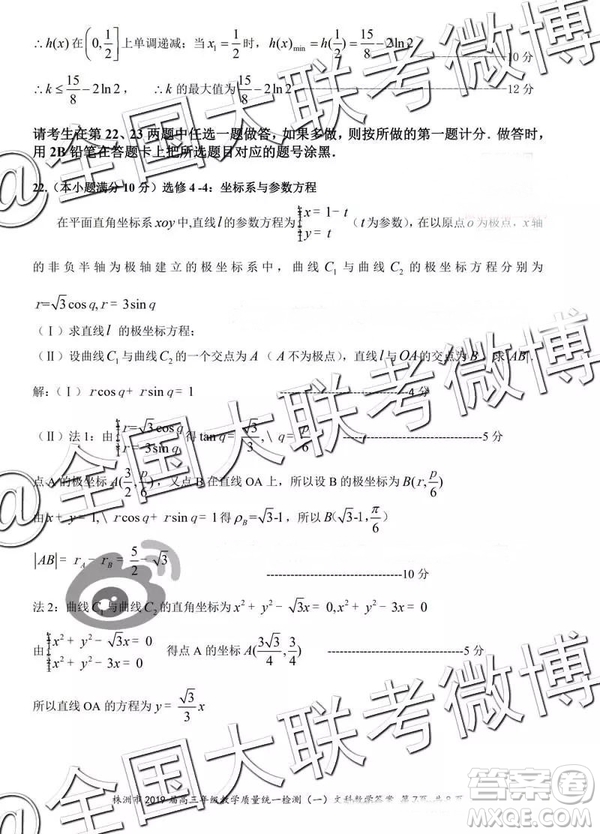 ∴h(x)在(0,1/2]上单调递减；当x₁=1/2时，h(x)min=h(1/2)=15/8-2ln2 ----10分
∴k≤15/8-2ln2， ∴k的最大值为15/8-2ln2 ----12分
请考生在第 22、23 两题中任选一题做答，如果多做，则按所做的第一题计分．做答时，
用 2B 铅笔在答题卡上把所选题目对应的题号涂黑．
22.（本小题满分 10 分）选修 4-4：坐标系与参数方程
在平面直角坐标系xoy中,直线l的参数方程为{x=1-t y=t（t为参数），在以原点o为极点，x轴
的非负半轴为极轴建立的极坐标系中，曲线C₁与曲线C₂的极坐标方程分别为
r=√3cosq,r=3sinq
（Ⅰ）求直线l的极坐标方程；
（Ⅱ）设曲线C₁与曲线C₂的一个交点为A（A不为极点），直线l与OA的交点为B，求|AB|.
解：（Ⅰ）rcosq+rsinq=1 ----4分
（Ⅱ）法1：由{r=√3cosq r=3sinq得tanq=√3/3,\q=p/6 ----5分
点A的极坐标A(3/2,p/6)，又点B在直线OA上，所以设B的极坐标为B(r,p/6)
由x+y=1,\rcosq+rsinq=1得ρB=√3-1,B(√3-1,π/6)
|AB|=rA-rB=5/2-√3 ----10分
法2：曲线C₁与曲线C₂的直角坐标方程为x²+y²-√3x=0,x²+y²-3y=0
由{x²+y²-√3x=0 x²+y²-3y=0 得点A的坐标A(3√3/4,3/4) ----5分
所以直线OA的方程为y=√3/3x
株洲市2019届高三年级教学质量统一检测（一）文科数学答案 第7页 共8页
@全国大联考微博
@全国大联考微博
答案圈